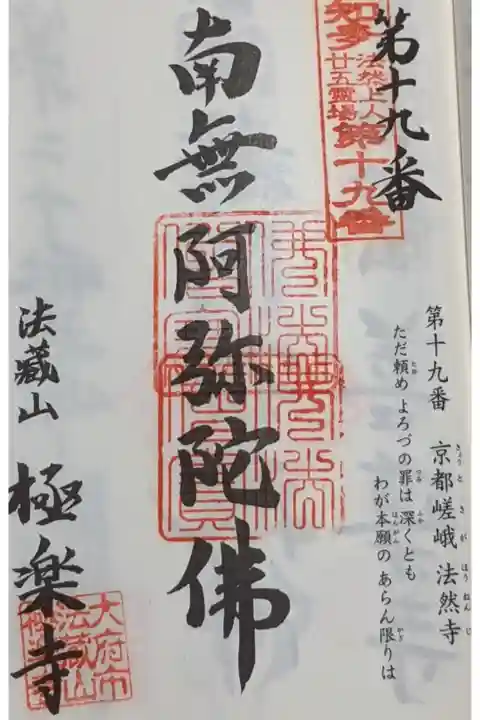 第十九番
知多
法然上人
廿五霊場
第十九番
第十九番 京都嵯峨 法然寺
ただ頼め よろづの罪は 深くとも
わが本願の あらん限りは
南無阿弥陀佛
法蔵山 極楽寺
大府市
法蔵山
極楽寺